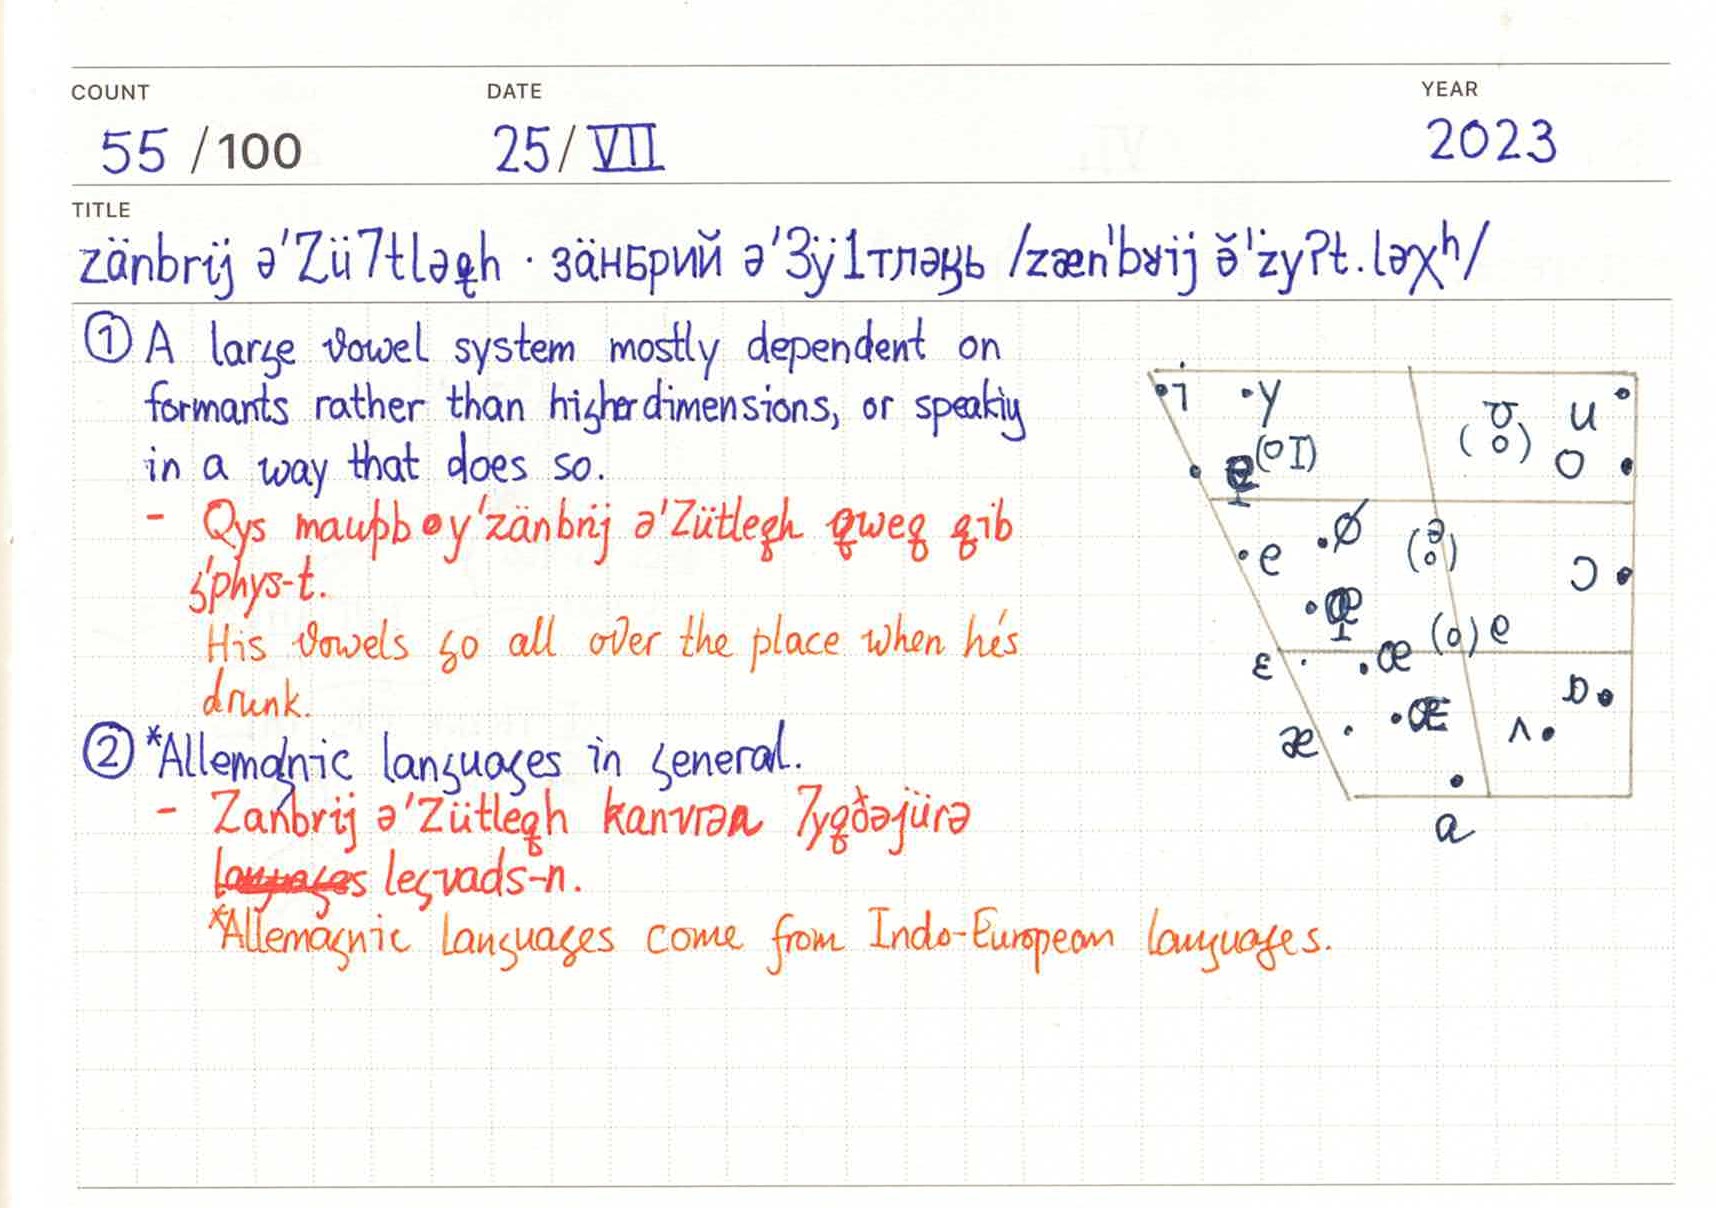 COUNT DATE YEAR
55 /100 25/VII 2023
TITLE
zänbrij ə'Zü7tləqh · зӓнбрий ə'Зӱ1тләҕь /zæn'bʁij ə̆'zyʔt.ləχʰ/
① A large vowel system mostly dependent on
formants rather than higher dimensions, or speakiy
in a way that does so.
- Qys mauþb y'zänbrij ə'Zütleqh qweq qib
ʒ'phys-t.
His vowels go all over the place when he's
drunk.
② *Allemagnic languages in general.
- Zanbrij ə'Zütleqh kanvrən 7yqðəjürə
leçvads-n.
*Allemagnic Languages come from Indo-European languages.
i y ʊ u
(o) o
(o I)
e ø (ə) ɔ
ɛ œ (o) ɐ
æ Œ ʌ ɒ
a